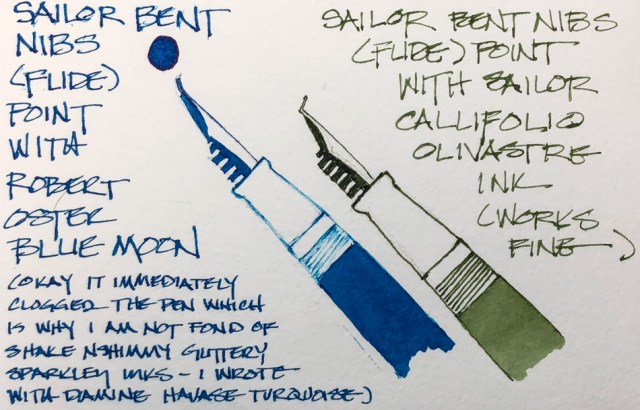 SAILOR BENT
NIBS
(FLIDE)
POINT
WITH
ROBERT
OSTER
BLUE MOON
(OKAY IT IMMEDIATELY
CLOGGED THE PEN WHICH
IS WHY I AM NOT FOND OF
SHAKE NSHIMMY GLITTERY
SPARKLEY INKS - I WROTE
WITH DIAMINE HAVASE TURQUOISE)
SAILOR BENT NIBS
(FLIDE) POINT
WITH SAILOR
CALLIFOLIO
OLIVASTRE
INK
(WORKS
FINE)